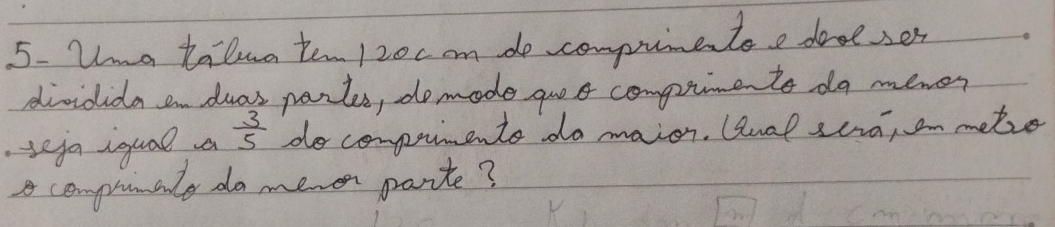 5- Uma tábua tem 120cm de comprimento e deve ser
dividida em duas partes, de modo que o comprimento da menor
seja igual a 3/5 do comprimento da maior. Qual será, em metro
o comprimento da menor parte?